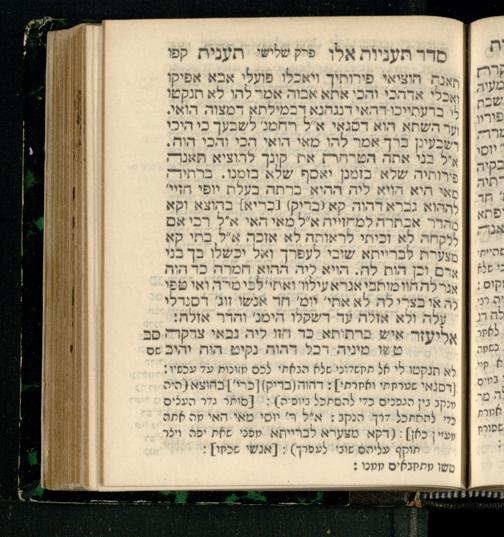 סדר תעניות אלו פרק שלישי תענית קפו
תאנה הוציאי פירותיך ויאכלו פועלי אבא אפיקו
ואכלי אדהכי והכי אתא אבוה אמר להו לא תנקטו
לי ברעתייכו דהאי דנגהנא במילתא דמצוה הואי.
ועד השתא הוא דסגאי א״ל רחמנ׳ לשבעך כי היכי
דשבעינן ברך אמר להו מאי הואי הכי והכי הוה.
א״ל בני אתה הטרחת את קונך להוציא תאנה
פירותיה שלא בזמנן יאסף שלא בזמנו. ברתיה
מאי היא הויא ליה ההיא ברתה בעלת יופי חזיי׳
לההוא גברא דהוה קא (בריק) [כריא] בהוצא וקא
מהדר אבתרה למחזייה א״ל מאי האי א״ל רבי אם
ללקחה לא זכיתי לראותה לא אזכה א״ל בתי קא
מצערת לברייתא שובי לעפרך ואל יכשלו בך בני
אדם וכן הות לה. הויא ליה ההוא חמרה כד הוה
אגר לה הוו מותבי אגרא עילוו׳ ואתי׳ לבי מרה ואי טפי
לה או בצרי לה לא אתי׳ יומ׳ חד אנשו זוג׳ דסנדלי
עלה ולא אזלה עד דשקלו הימנ׳ והדר אזלה:
אליעזר איש ברתותא כד חזו ליה גבאי צדקה סב
טשו מיניה דכל דהוה נקיט הוה יהיב שם
לא תנקטו לי אל תחשדוני שלא הבאתי לכם מזונות עד עכשיו:
[דסגאי שטרחתי ואחרתי]: דהוה(בדיק)[כרי׳]בהוצא(היה
מנקב בין הגפנים כדי להסתכל ביופיה): [סותר גדר העלים
כדי להסתכל דרך הנקב: א״ל ר׳ יוסי מאי האי מה אתה
מעיין כאן]: (דקא מצערא לברייתא מפני שאת יפה ויצר
תוקף עליהם שובי לעפרך): [אנשי שכחו]:
טשו מתחבאים ממנו: